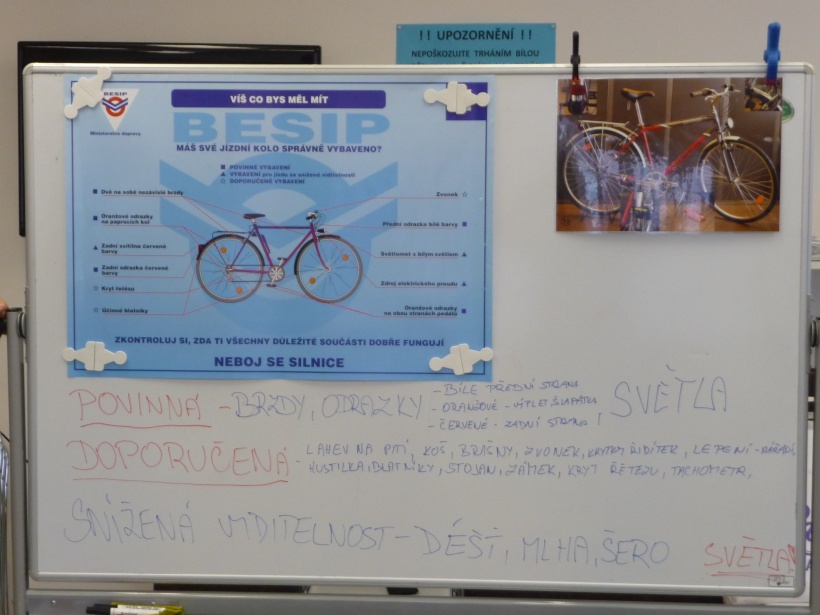 !! UPOZORNĚNÍ !!
NEPOŠKOZUJTE TRHÁNÍM BÍLOU
BESIP
Ministerstvo dopravy
VÍŠ CO BYS MĚL MÍT
BESIP
MÁŠ SVÉ JÍZDNÍ KOLO SPRÁVNĚ VYBAVENO?
POVINNÉ VYBAVENÍ
VYBAVENÍ pro jízdu za snížené viditelnosti
DOPORUČENÉ VYBAVENÍ
Dvě na sobě nezávislé brzdy
Oranžové odrazky
na paprscích kol
Zadní svítilna červené
barvy
Zadní odrazka červené
barvy
Kryt řetězu
Účinné blatníky
Zvonek
Přední odrazka bílé barvy
Světlomet s bílým světlem
Zdroj elektrického proudu
Oranžové odrazky
na obou stranách pedálů
ZKONTROLUJ SI, ZDA TI VŠECHNY DŮLEŽITÉ SOUČÁSTI DOBŘE FUNGUJÍ
NEBOJ SE SILNICE
POVINNÁ - BRZDY, ODRAZKY
- BÍLÉ PŘEDNÍ STRANA
- ORANŽOVÉ - VÝPLET ŠLAPÁTKA
- ČERVENÉ - ZADNÍ STRANA
, SVĚTLA
DOPORUČENÁ - LAHEV NA PITÍ, KOŠ, BRAŠNY, ZVONEK, ŘIDÍTEK, LEPENÍ - NÁŘADÍ,
HUSTILKA, BLATNÍKY, STOJAN, ZÁMEK, KRYT ŘETEZU, TACHOMETR,
SNÍŽENÁ VIDITELNOST - DÉŠŤ, MLHA, ŠERO SVĚTLA!